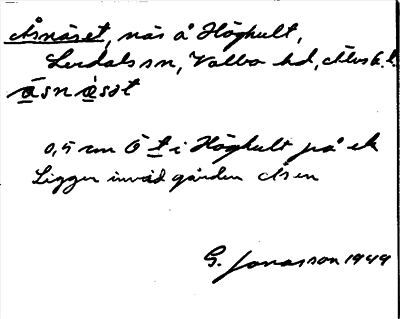 Åsnäset, näs å Höghult,
Lerdals sn, Valbo hd, Älvsb. l.
åsnèsət
0,5 cm Ö t i Höghult på ek
Ligger invid gården Åsen
G. Jonasson 1949